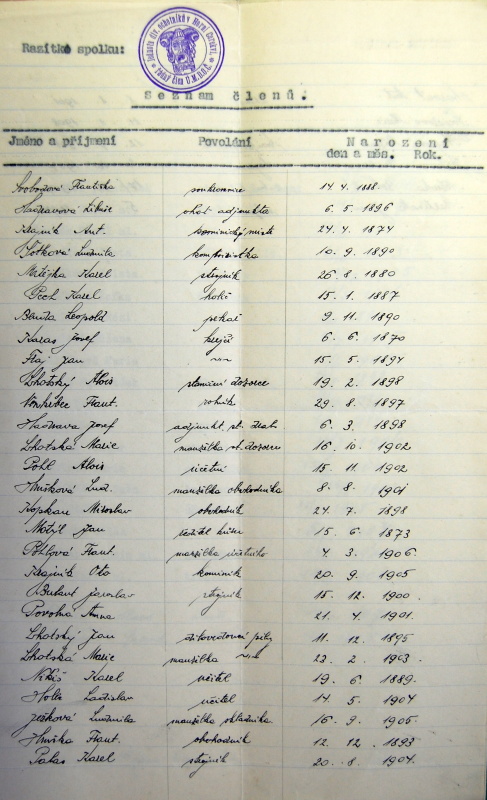 Razítko spolku:
Jednota div. ochotníků v Horní Cerekvi
řádný člen Ú.M.D.O.Č.
Seznam členů.
Jméno a příjmení Povolání Narození
den a měs. Rok.
Svobodová Františka soukromnice 14. 4. 1888.
Hadravová Libuše choť adjunkta 6. 5. 1896
Krajník Ant. kominický mistr 24. 4. 1874
Ludmila kompozistka 10. 9. 1890
Matějka Karel strojník 26. 8. 1880
Pech Karel holič 15. 1. 1887
Benda Leopold pekař 9. 11. 1890
Karas Josef krejčí 6. 6. 1870
Jan -"- 15. 5. 1894
Lhotský Alois staniční dozorce 19. 2. 1898
Frant. rolník 29. 8. 1897
Hadrava Josef adjunkt st. drah 6. 3. 1898
Lhotská Marie manželka st. dozorce 16. 10. 1902
Pohl Alois účetní 15. 11. 1902
Hrušková Lud. manželka obchodníka 8. 8. 1901
Miroslav obchodník 24. 7. 1898
Motýl Jan ředitel kůru 15. 6. 1873
Pohlová Frant. manželka účetního 4. 3. 1906.
Krajník Oto kominík 20. 9. 1905
Jaroslav strojník 15. 12. 1900.
Povolná Anna 21. 4. 1901.
Lhotský Jan pily 11. 12. 1895
Lhotská Marie manželka -"- 23. 2. 1903.
Karel učitel 19. 6. 1889.
Ladislav učitel 14. 5. 1904
Ježková Ludmila manželka skladníka 16. 9. 1905.
Hruška Frant. obchodník 12. 12. 1893
Palas Karel strojník 20. 8. 1904.